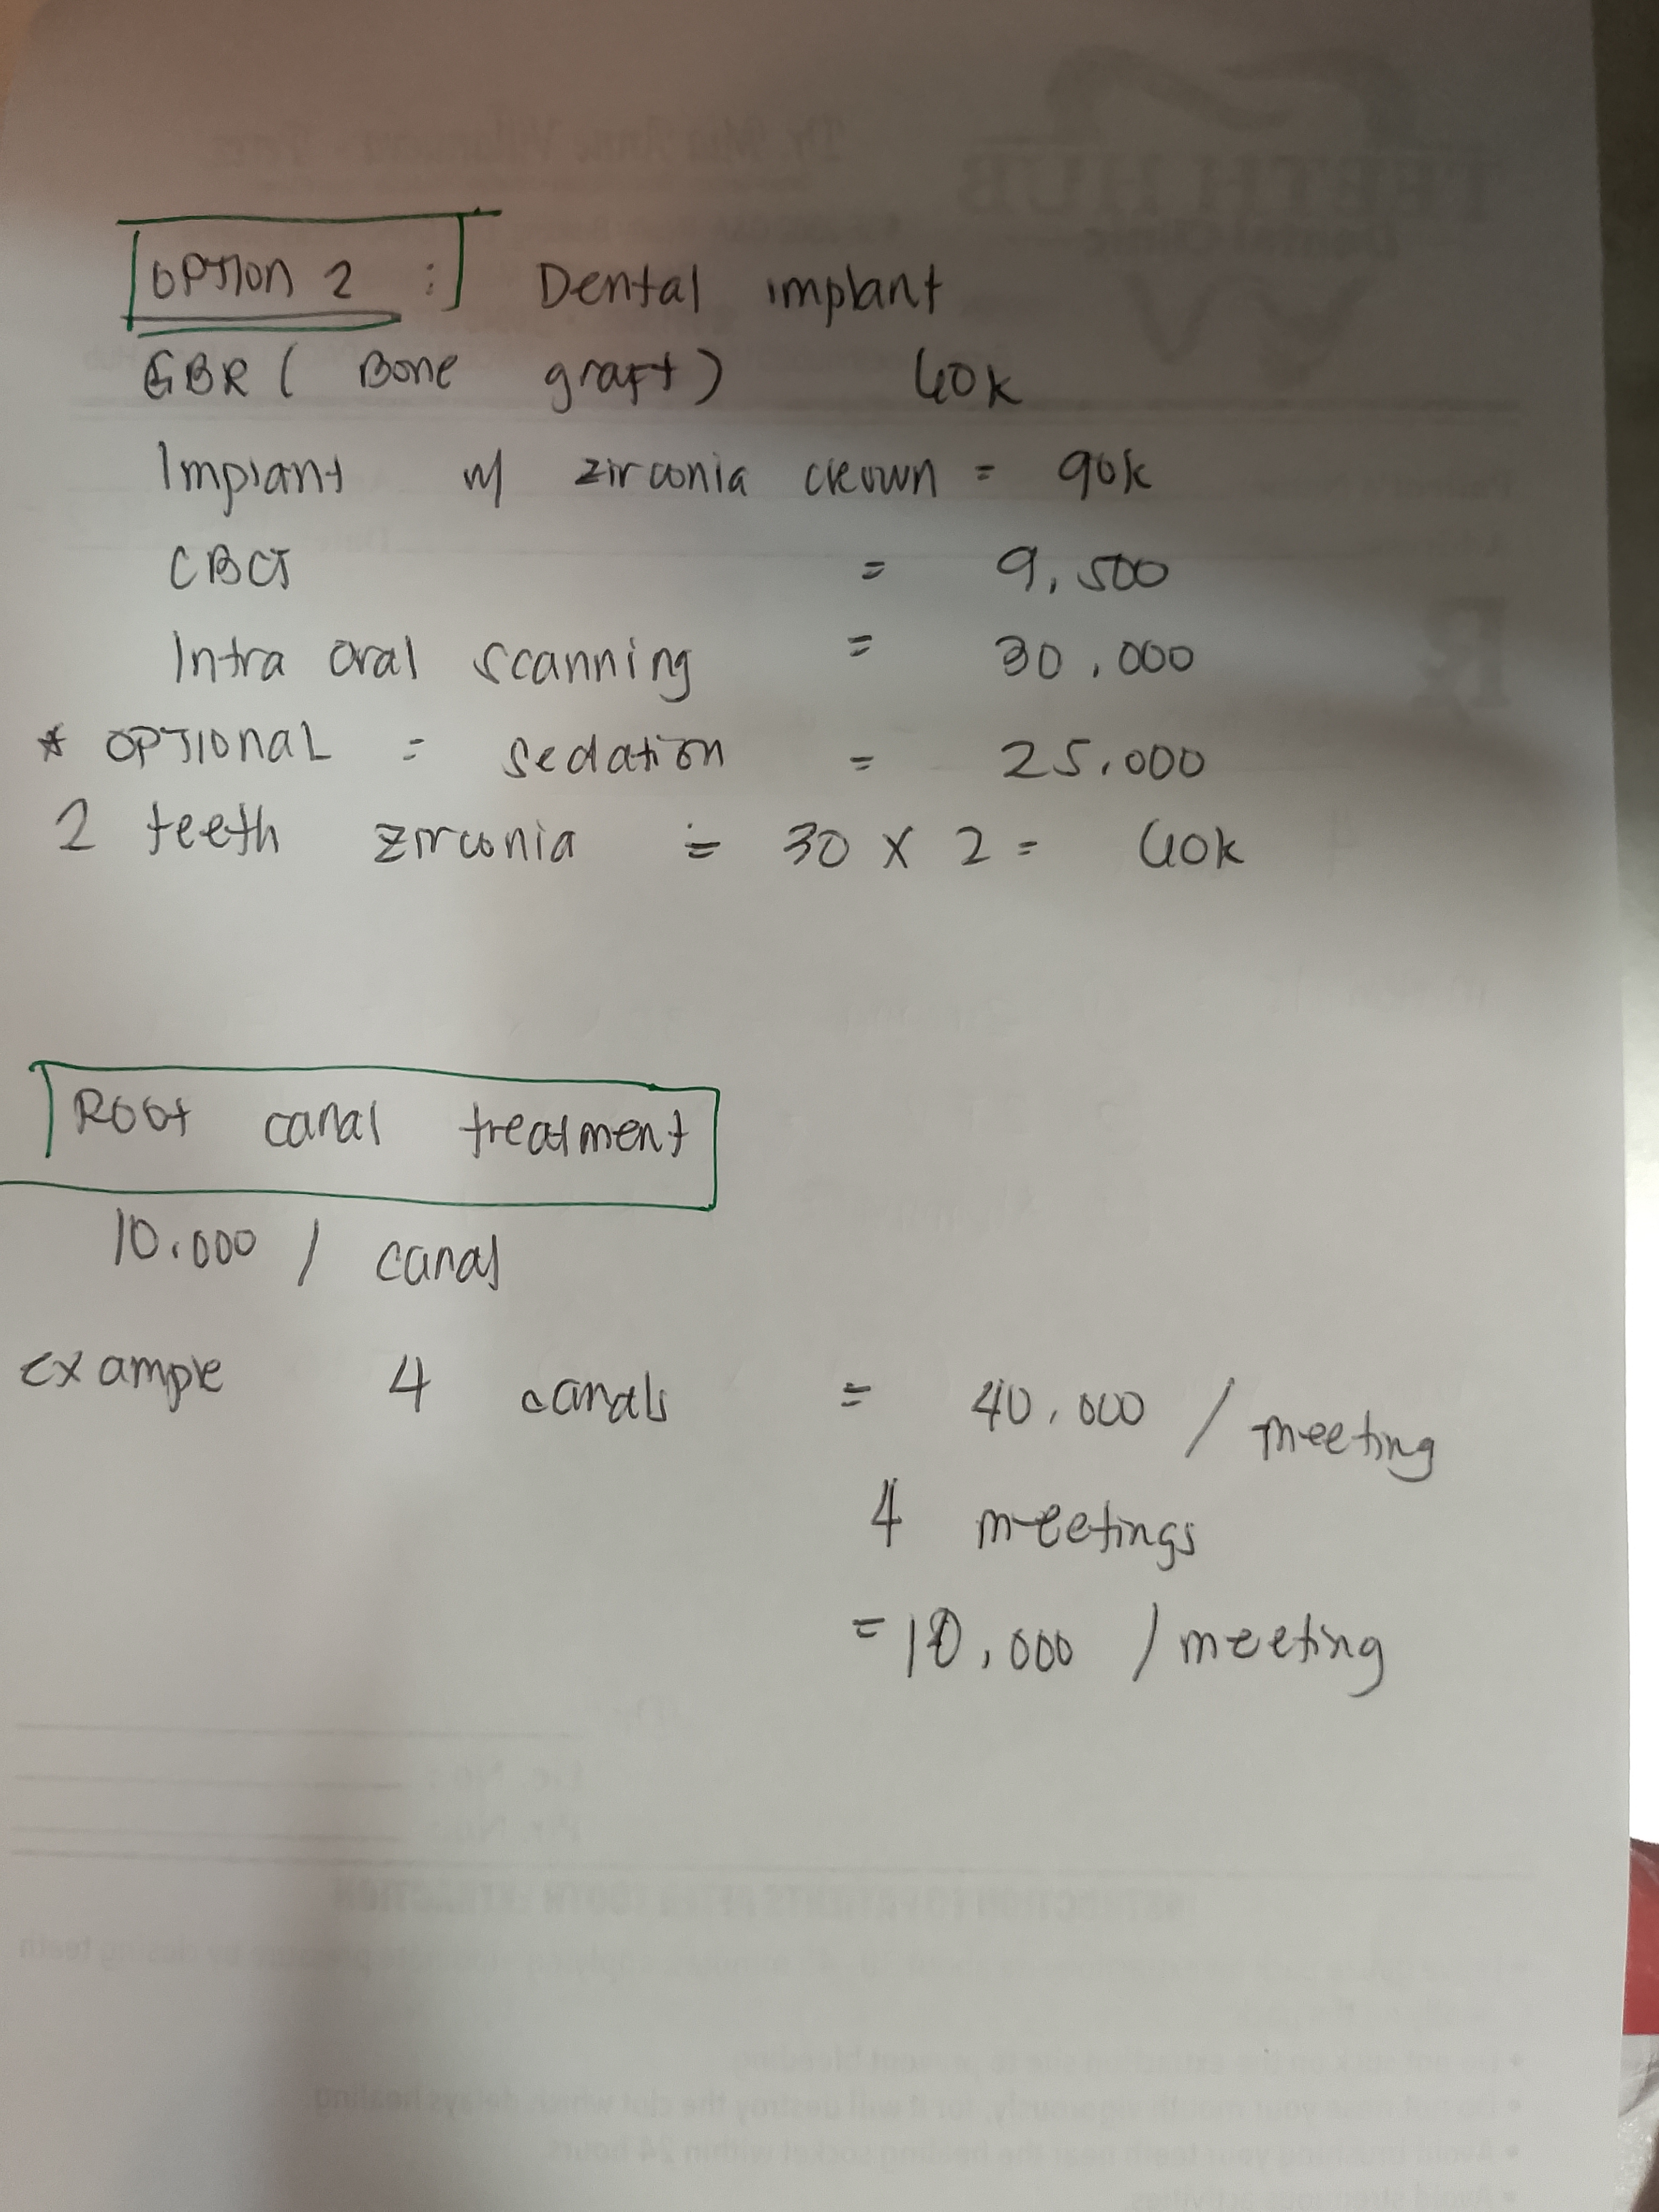 OPTION 2 : Dental implant
GBR ( Bone graft ) 60k
Implant w/ zirconia crown = 90k
CBCT = 9,500
Intra oral scanning = 30,000
* OPTIONAL = Sedation = 25,000
2 teeth zirconia = 30 x 2 = 60k
Root canal treatment
10,000 / canal
example 4 canals = 40,000 / meeting
4 meetings
= 10,000 / meeting